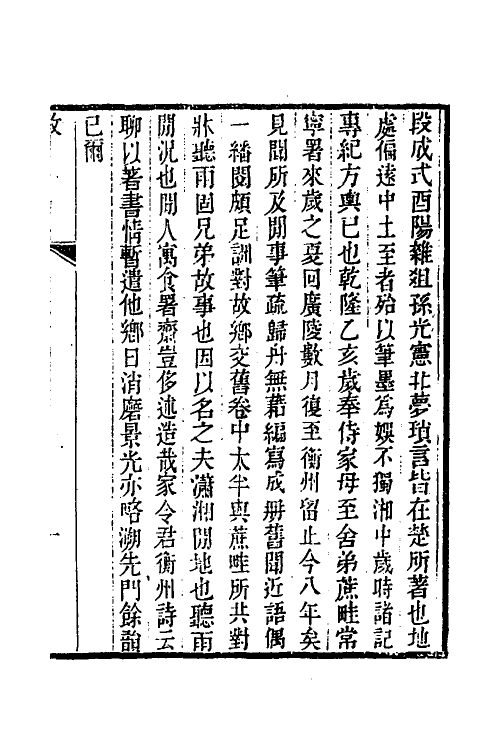 段成式酉陽雜俎孫光憲北夢瑣言皆在楚所著也地
處偏遠中土至者殆以筆墨為娛不獨湘中歲時諸記
專紀方輿已也乾隆乙亥歲奉侍家母至舍弟蔗畦常
寧署來歲之夏回廣陵數月復至衡州留止今八年矣
見聞所及閒事筆疏歸舟無藉編寫成册舊聞近語偶
一繙閱頗足訓對故鄉交舊卷中大半與蔗畦所共對
牀聽雨固兄弟故事也因以名之夫瀟湘閒地也聽雨
閒況也閒人寓食署齋豈侈述造哉家令君衡州詩云
聊以著書情暫遣他鄉日消磨景光亦咯溯先門餘韻
已爾
一